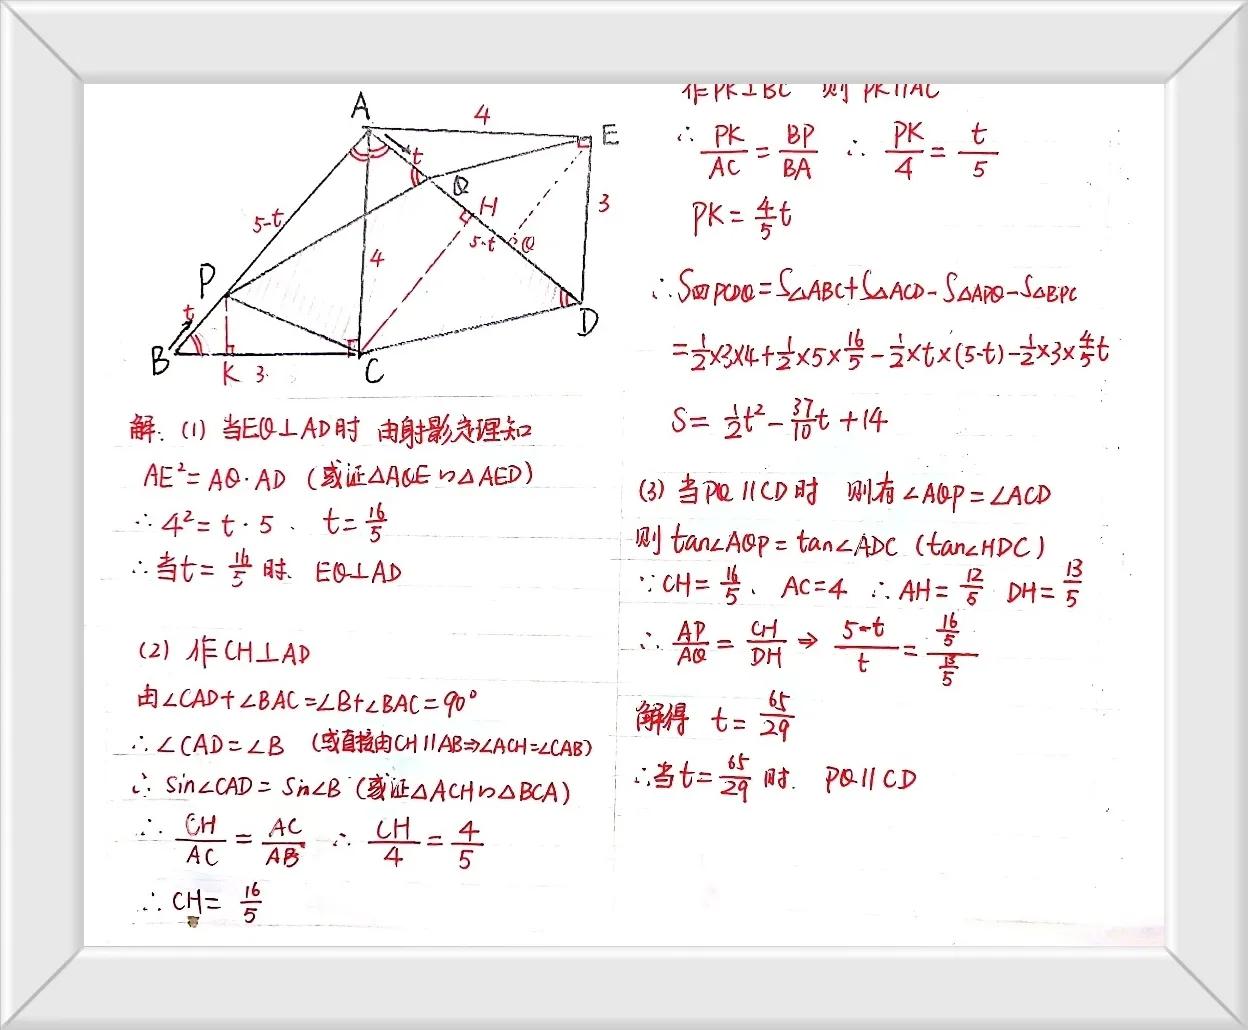 A
4
E
t
Q
H
3
5-t
5-t
Q
4
P
t
D
B
K 3
C
解:(1) 当EQ⊥AD时 由射影定理知
AE²=AQ·AD (或证△AQE∽△AED)
∴ 4²= t·5 . t=16/5
∴当t=16/5时. EQ⊥AD
(2) 作CH⊥AD
由∠CAD+∠BAC=∠B+∠BAC=90°
∴∠CAD=∠B (或直接由CH∥AB⇒∠ACH=∠CAB)
∴ Sin∠CAD=Sin∠B (或证△ACH∽△BCA)
∴ CH/AC = AC/AB ∴ CH/4 = 4/5
∴ CH= 16/5
作PK⊥BC 则PK∥AC
∴ PK/AC = BP/BA ∴ PK/4 = t/5
PK= 4/5 t
∴ S四PCDQ=S△ABC+S△ACD-S△APQ-S△BPC
= 1/2×3×4+1/2×5×16/5-1/2×t×(5-t)-1/2×3×4/5 t
S= 1/2 t²- 37/10 t +14
(3) 当PQ∥CD时 则有∠AQP=∠ACD
则tan∠AQP=tan∠ADC (tan∠HDC)
∵CH=16/5、AC=4 ∴AH=12/5 DH=13/5
∴ AP/AQ = CH/DH ⇒ (5-t)/t = (16/5)/(13/5)
解得 t= 65/29
∴当t=65/29时. PQ∥CD